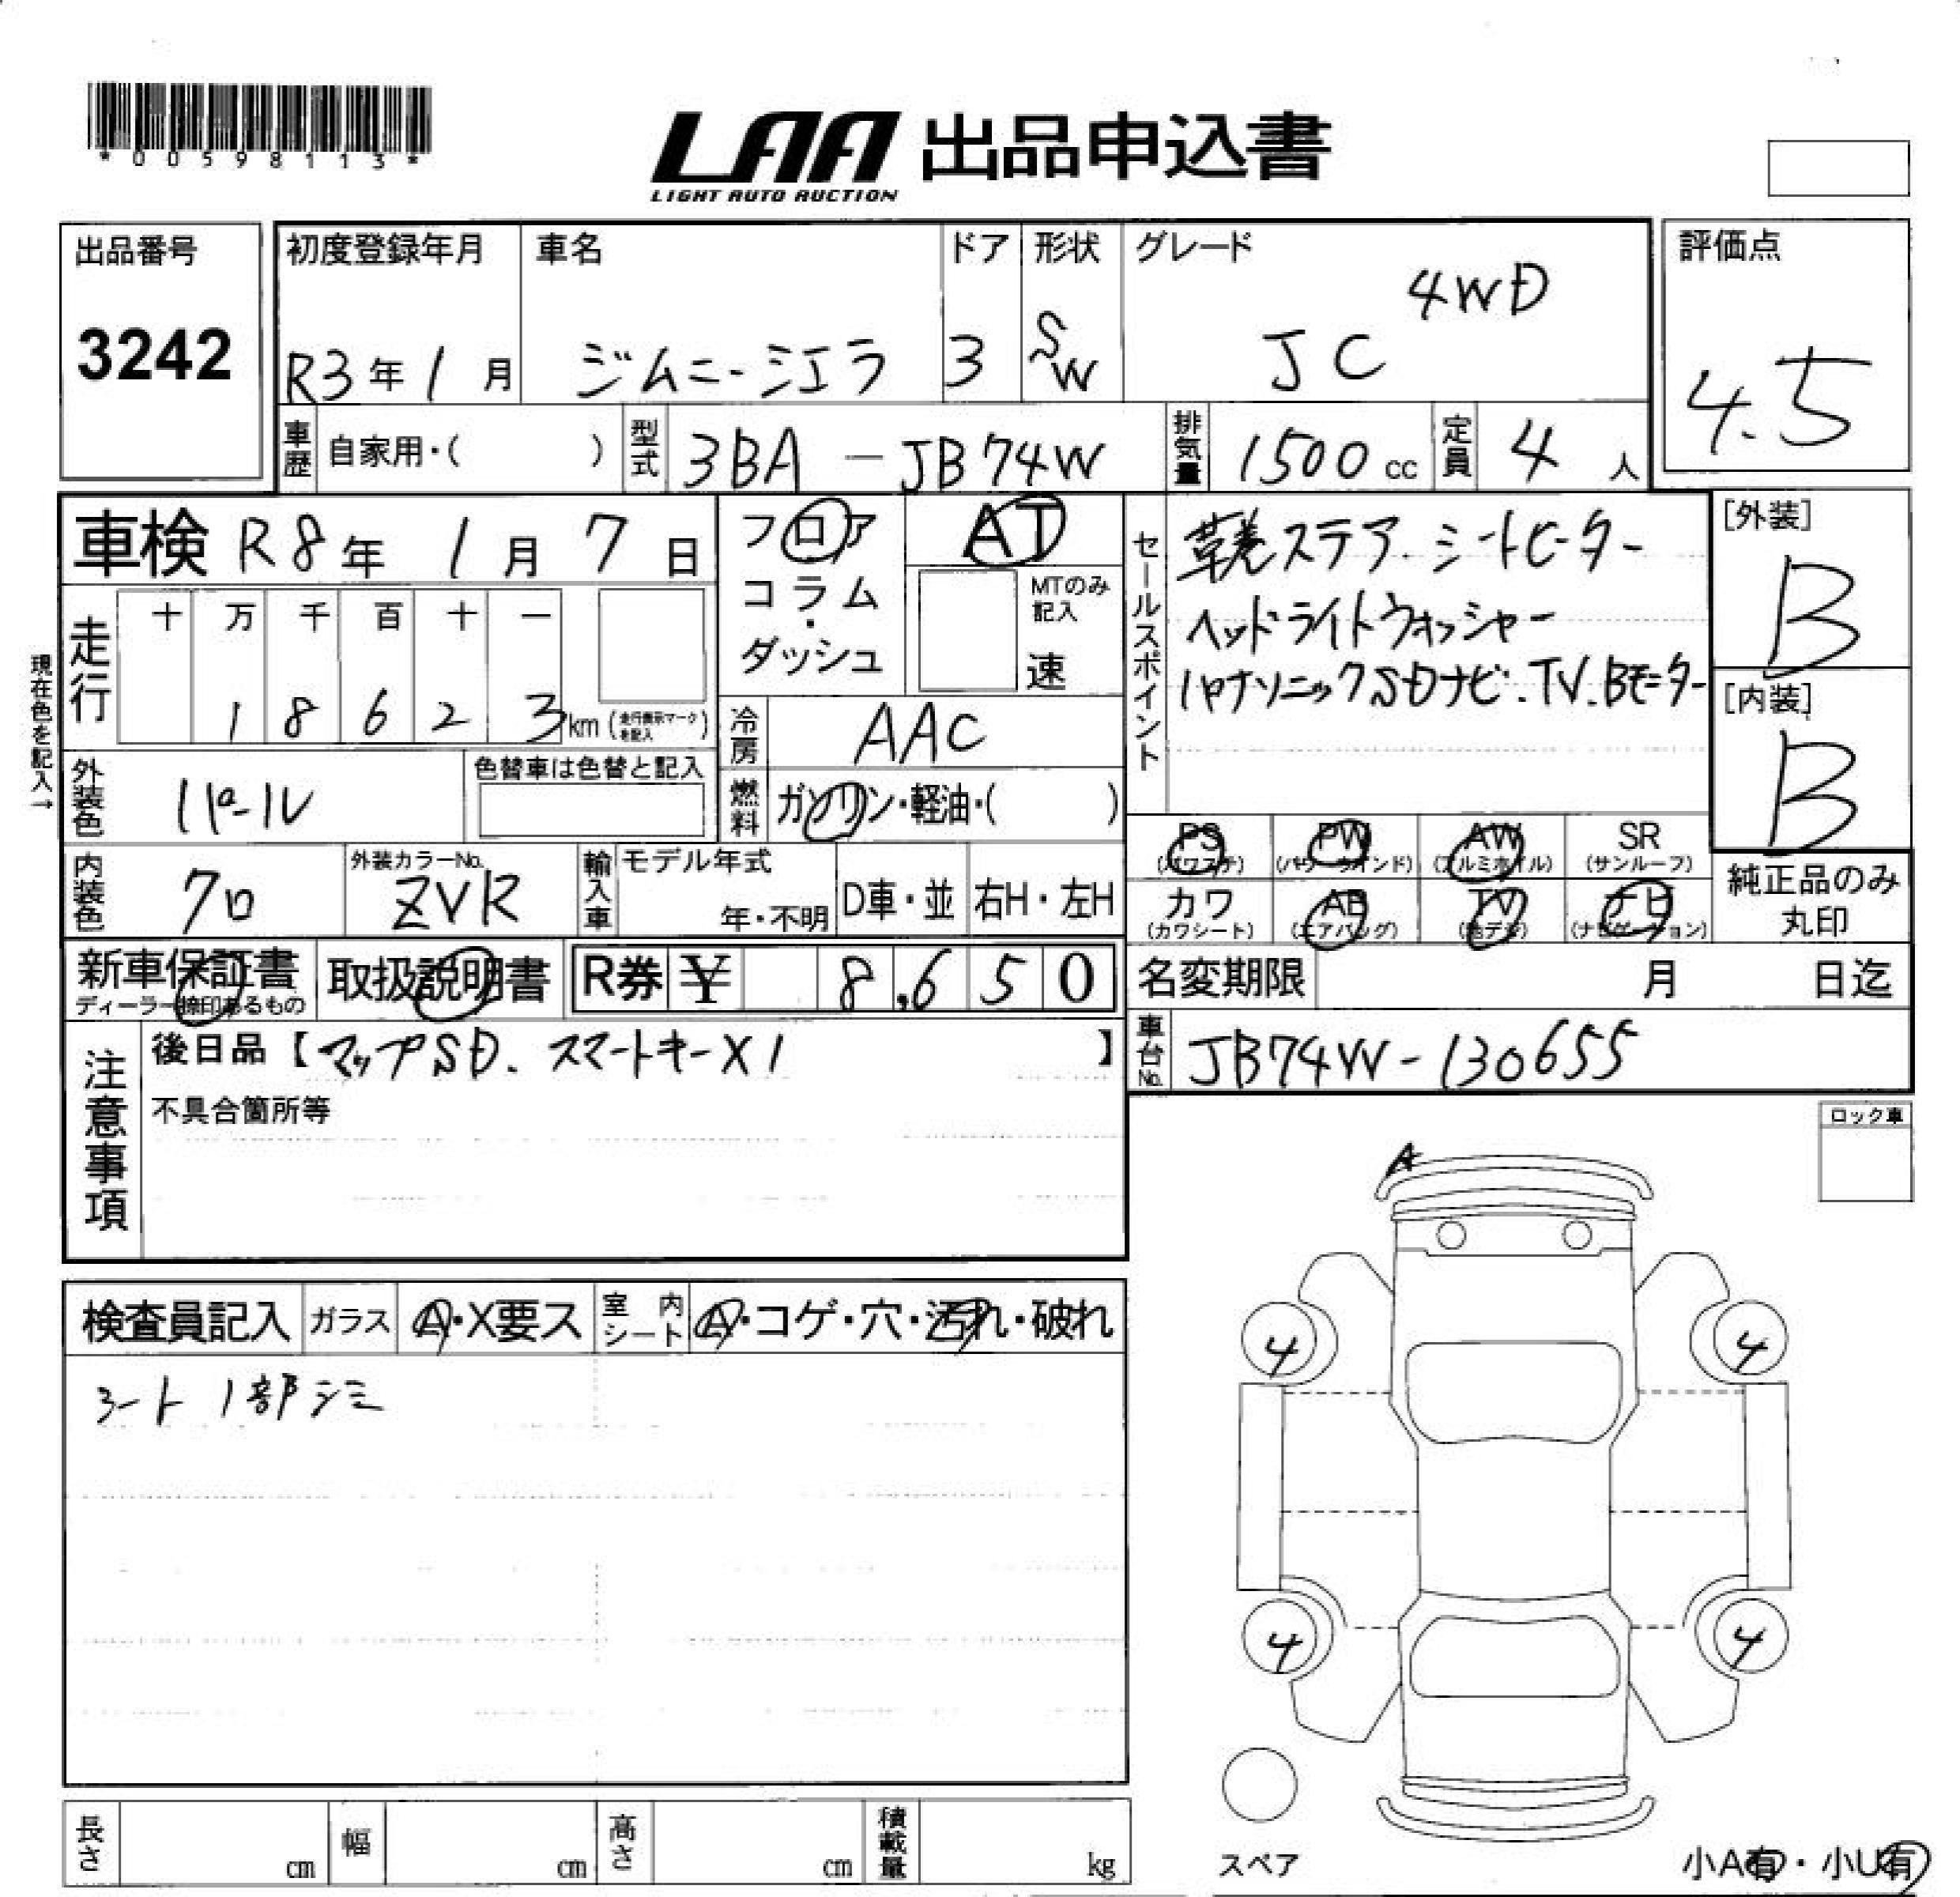 *00598113*
LAA 出品申込書
LIGHT AUTO AUCTION
出品番号
3242
初度登録年月
R3年 1月
車名
ジムニーシエラ
ドア
3
形状
SW
グレード
4WD
JC
評価点
4.5
車歴 自家用・( )
型式 3BA-JB74W
排気量 1500cc
定員 4人
車検 R8年 1月 7日
フロア
コラム・
ダッシュ
AT
MTのみ記入
速
セールスポイント
革巻ステア.シートヒーター
ヘッドライトウォッシャー
パナソニックSDナビ.TV.Bモニター
[外装]
B
[内装]
B
現在色を記入→
走行
十 万 千 百 十 一
1 8 6 2 3 km (走行表示マークを記入)
冷房 AAC
燃料 ガソリン・軽油・( )
外装色 パール
色替車は色替と記入
内装色 クロ
外装カラーNo.
ZVR
輸入車
モデル年式
年・不明
D車・並
右H・左H
PS (パワステ)
PW (パワーウインド)
AW (アルミホイル)
SR (サンルーフ)
カワ (カワシート)
AB (エアバッグ)
TV (地デジ)
ナビ (ナビゲーション)
純正品のみ
丸印
新車保証書
ディーラー捺印あるもの
取扱説明書
R券 ¥ 8,650
名変期限 月 日迄
車台No. JB74W-130655
注意事項
後日品【マップSD. スマートキーX1 】
不具合箇所等
ロック車
A
検査員記入 ガラス A・X要ス
室内シート A・コゲ・穴・汚れ・破れ
シート 1部シミ
4 4
4 4
スペア
長さ cm
幅 cm
高さ cm
積載量 kg
小A有・小U有